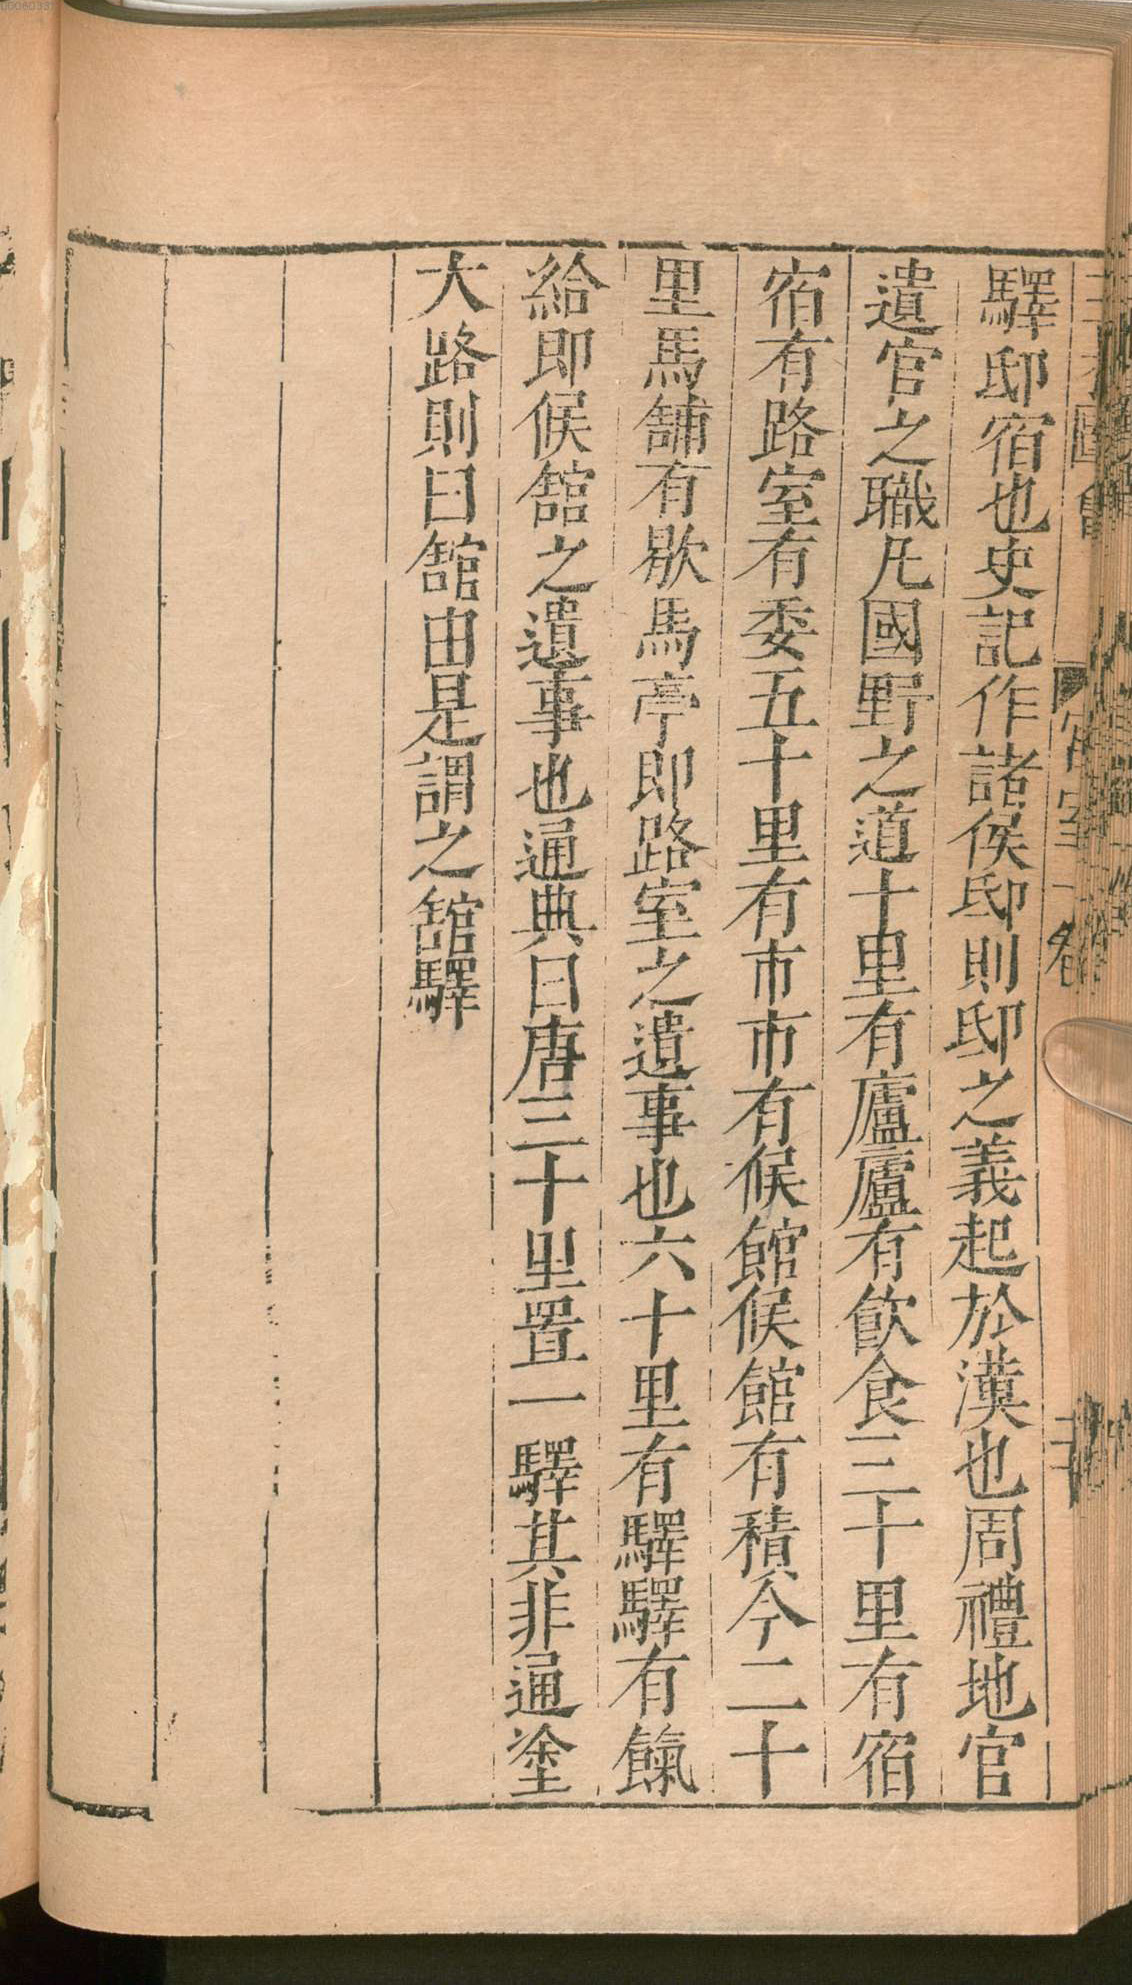 驛邸宿也史記作諸侯邸則邸之義起於漢也周禮地官
遺官之職凡國野之道十里有廬廬有飲食三十里有宿
宿有路室有委五十里有市市有候館候館有積今二十
里馬舖有歇馬亭即路室之遺事也六十里有驛驛有餼
給即候舘之遺事也通典曰唐三十里置一驛其非通塗
大路則曰舘由是謂之舘驛